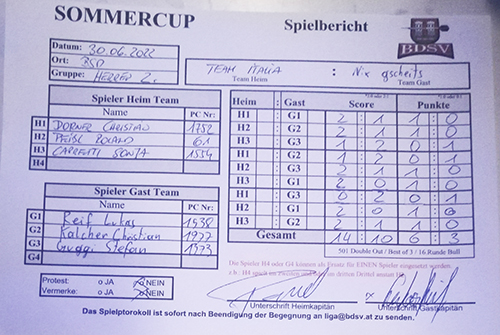 SOMMERCUP
Spielbericht
BDSV
Datum: 30.06.2022
Ort: BSD
Gruppe: HERREN 2.
TEAM ITALIA : Nix gscheits
Team Heim Team Gast
Spieler Heim Team
Name PC Nr:
H1 DORNER CHRISTIAN 1752
H2 ROLAND 61
H3 SONJA 1554
H4
Spieler Gast Team
Name PC Nr:
G1 Reif Lukas 1538
G2 Kalcher Christian 1977
G3 Guggi Stefan 1973
G4
Heim : Gast Score Punkte
H1 G1 2 : 1 1 : 0
H2 G2 2 : 1 1 : 0
H3 G3 1 : 2 0 : 1
H1 G2 1 : 2 0 : 1
H2 G3 2 : 1 1 : 0
H3 G1 2 : 0 1 : 0
H1 G3 0 : 2 0 : 1
H2 G1 2 : 0 1 : 0
H3 G2 2 : 1 1 : 0
Gesamt 14 : 10 6 : 3
501 Double Out / Best of 3 / 16 Runde Bull
Die Spieler H4 oder G4 können als Ersatz für EINEN Spieler eingesetzt werden.
z.b.: H4 spielt im zweiten und im dritten Drittel anstatt H1
Protest: o JA o NEIN
Vermerke: o JA o NEIN
Unterschrift Heimkapitän
Unterschrift Gastkapitän
Das Spielptorokoll ist sofort nach Beendigung der Begegnung an liga@bdsv.at zu senden.